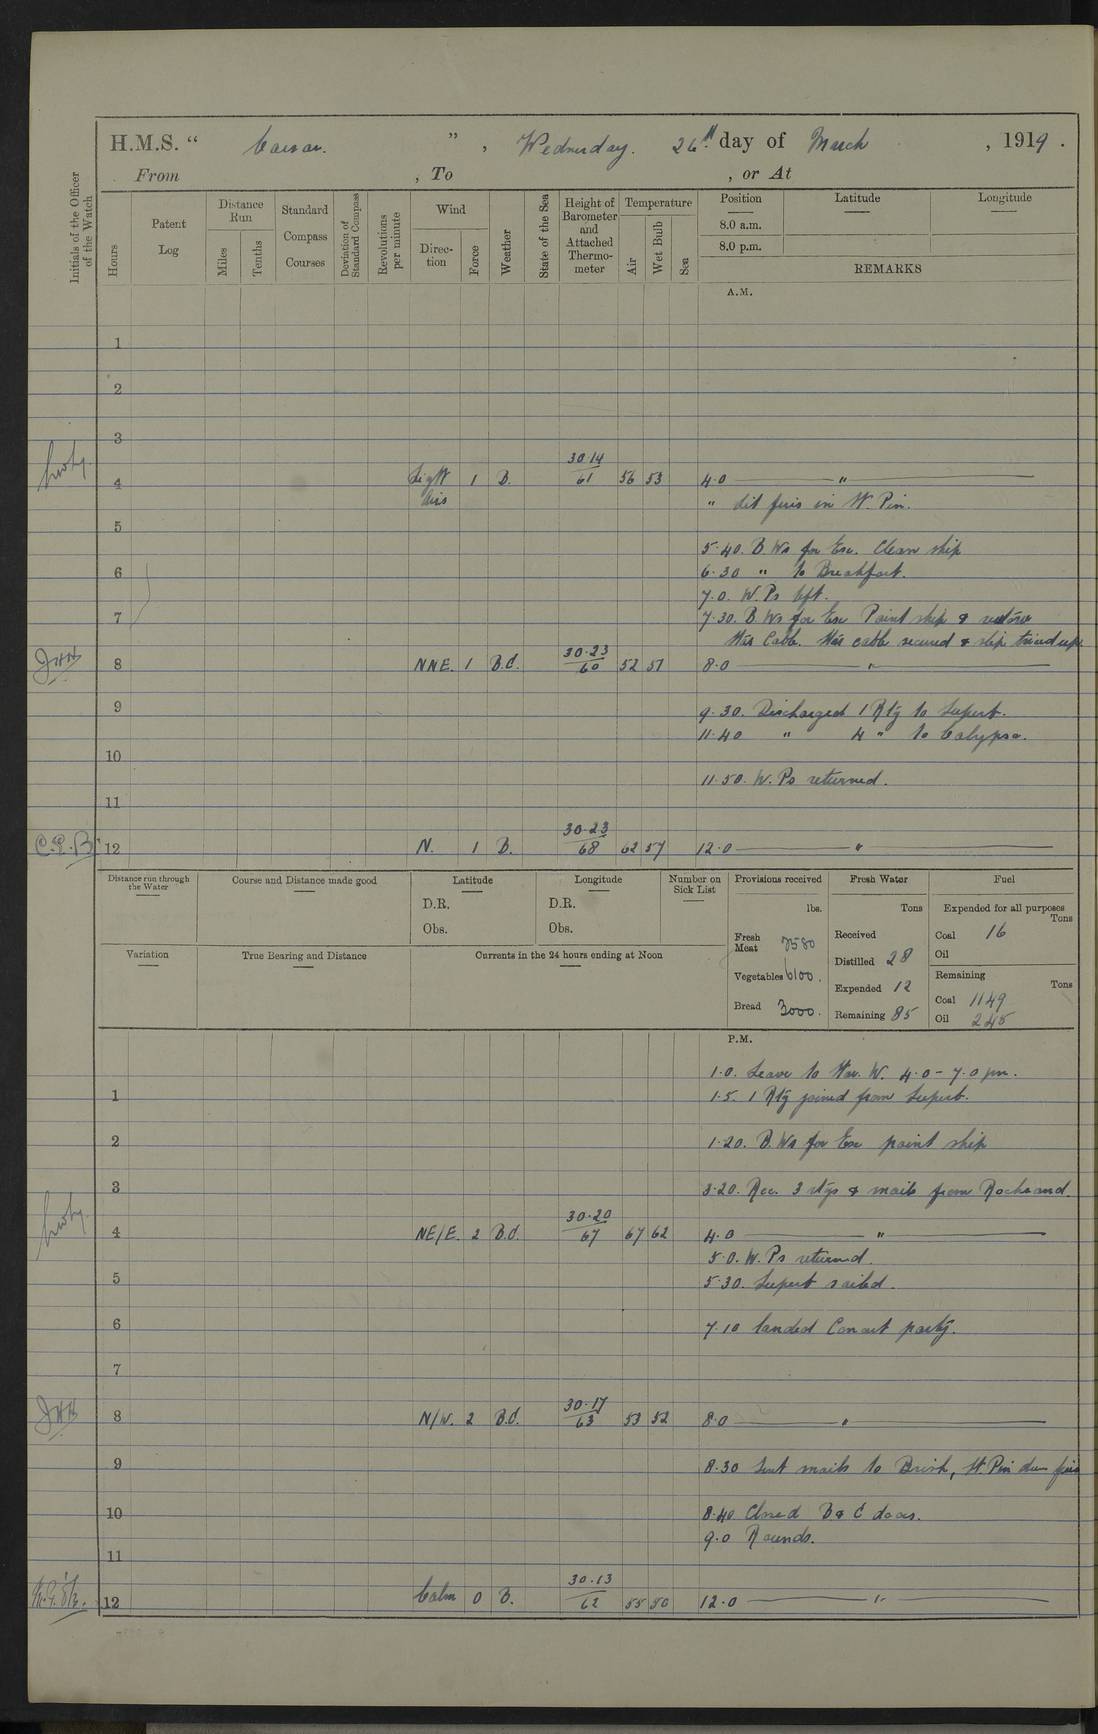 H.M.S. " Caesar. " , Wednesday. 26th. day of March , 1919 .
From , To , or At
Initials of the Officer of the Watch
Hours
Patent Log
Distance Run
Miles
Tenths
Standard Compass Courses
Deviation of Standard Compass
Revolutions per minute
Wind
Direction
Force
Weather
State of the Sea
Height of Barometer and Attached Thermometer
Temperature
Air
Wet Bulb
Sea
Position Latitude Longitude
8.0 a.m.
8.0 p.m.
REMARKS
A.M.
1
2
3
4 Light airs 1 B. 30.14 61 56 53 4.0 "
" dit fires in St. Pin.
5
5.40. B Ws for Ex. Clean ship
6 6.30 " to Breakfast.
7.0. W.Ps left.
7 7.30. B.Ws for Ex Paint ship &
cable. cable secured & ship
JHH 8 NNE. 1 B.C. 30.23 60 52 51 8.0 "
9 9.30. Discharged 1 Rtg to Superb.
11.40 " 4 " to Calypso.
10
11.50. W.Ps returned.
11
C.E.B. 12 N. 1 B. 30.23 68 62 57 12.0 "
Distance run through the Water
Course and Distance made good
Latitude
D.R.
Obs.
Longitude
D.R.
Obs.
Number on Sick List
Variation
True Bearing and Distance
Currents in the 24 hours ending at Noon
Provisions received
lbs.
Fresh Meat 7580
Vegetables 6100.
Bread 3000.
Fresh Water
Tons
Received
Distilled 28
Expended 12
Remaining 85
Fuel
Expended for all purposes
Tons
Coal 16
Oil
Remaining
Tons
Coal 1149
Oil 245
P.M.
1.0. Leave to W. 4.0 - 7.0 pm.
1 1.5. 1 Rtg joined from Superb.
2 1.20. B.Ws for Ex paint ship
3 3.20. Rec. 3 rtgs & mails from Rocksand.
4 NE/E. 2 B.C. 30.20 67 67 62 4.0 "
5.0. W.Ps returned.
5 5.30. Superb sailed.
6 7.10 landed Concert party.
7
JHH 8 N/W. 2 B.C. 30.17 63 53 52 8.0 "
9 8.30 Sent mails to Brisk, St. Pin
10 8.40 Closed B & C doors.
9.0 Rounds.
11
12 Calm 0 B. 30.13 62 55 50 12.0 "